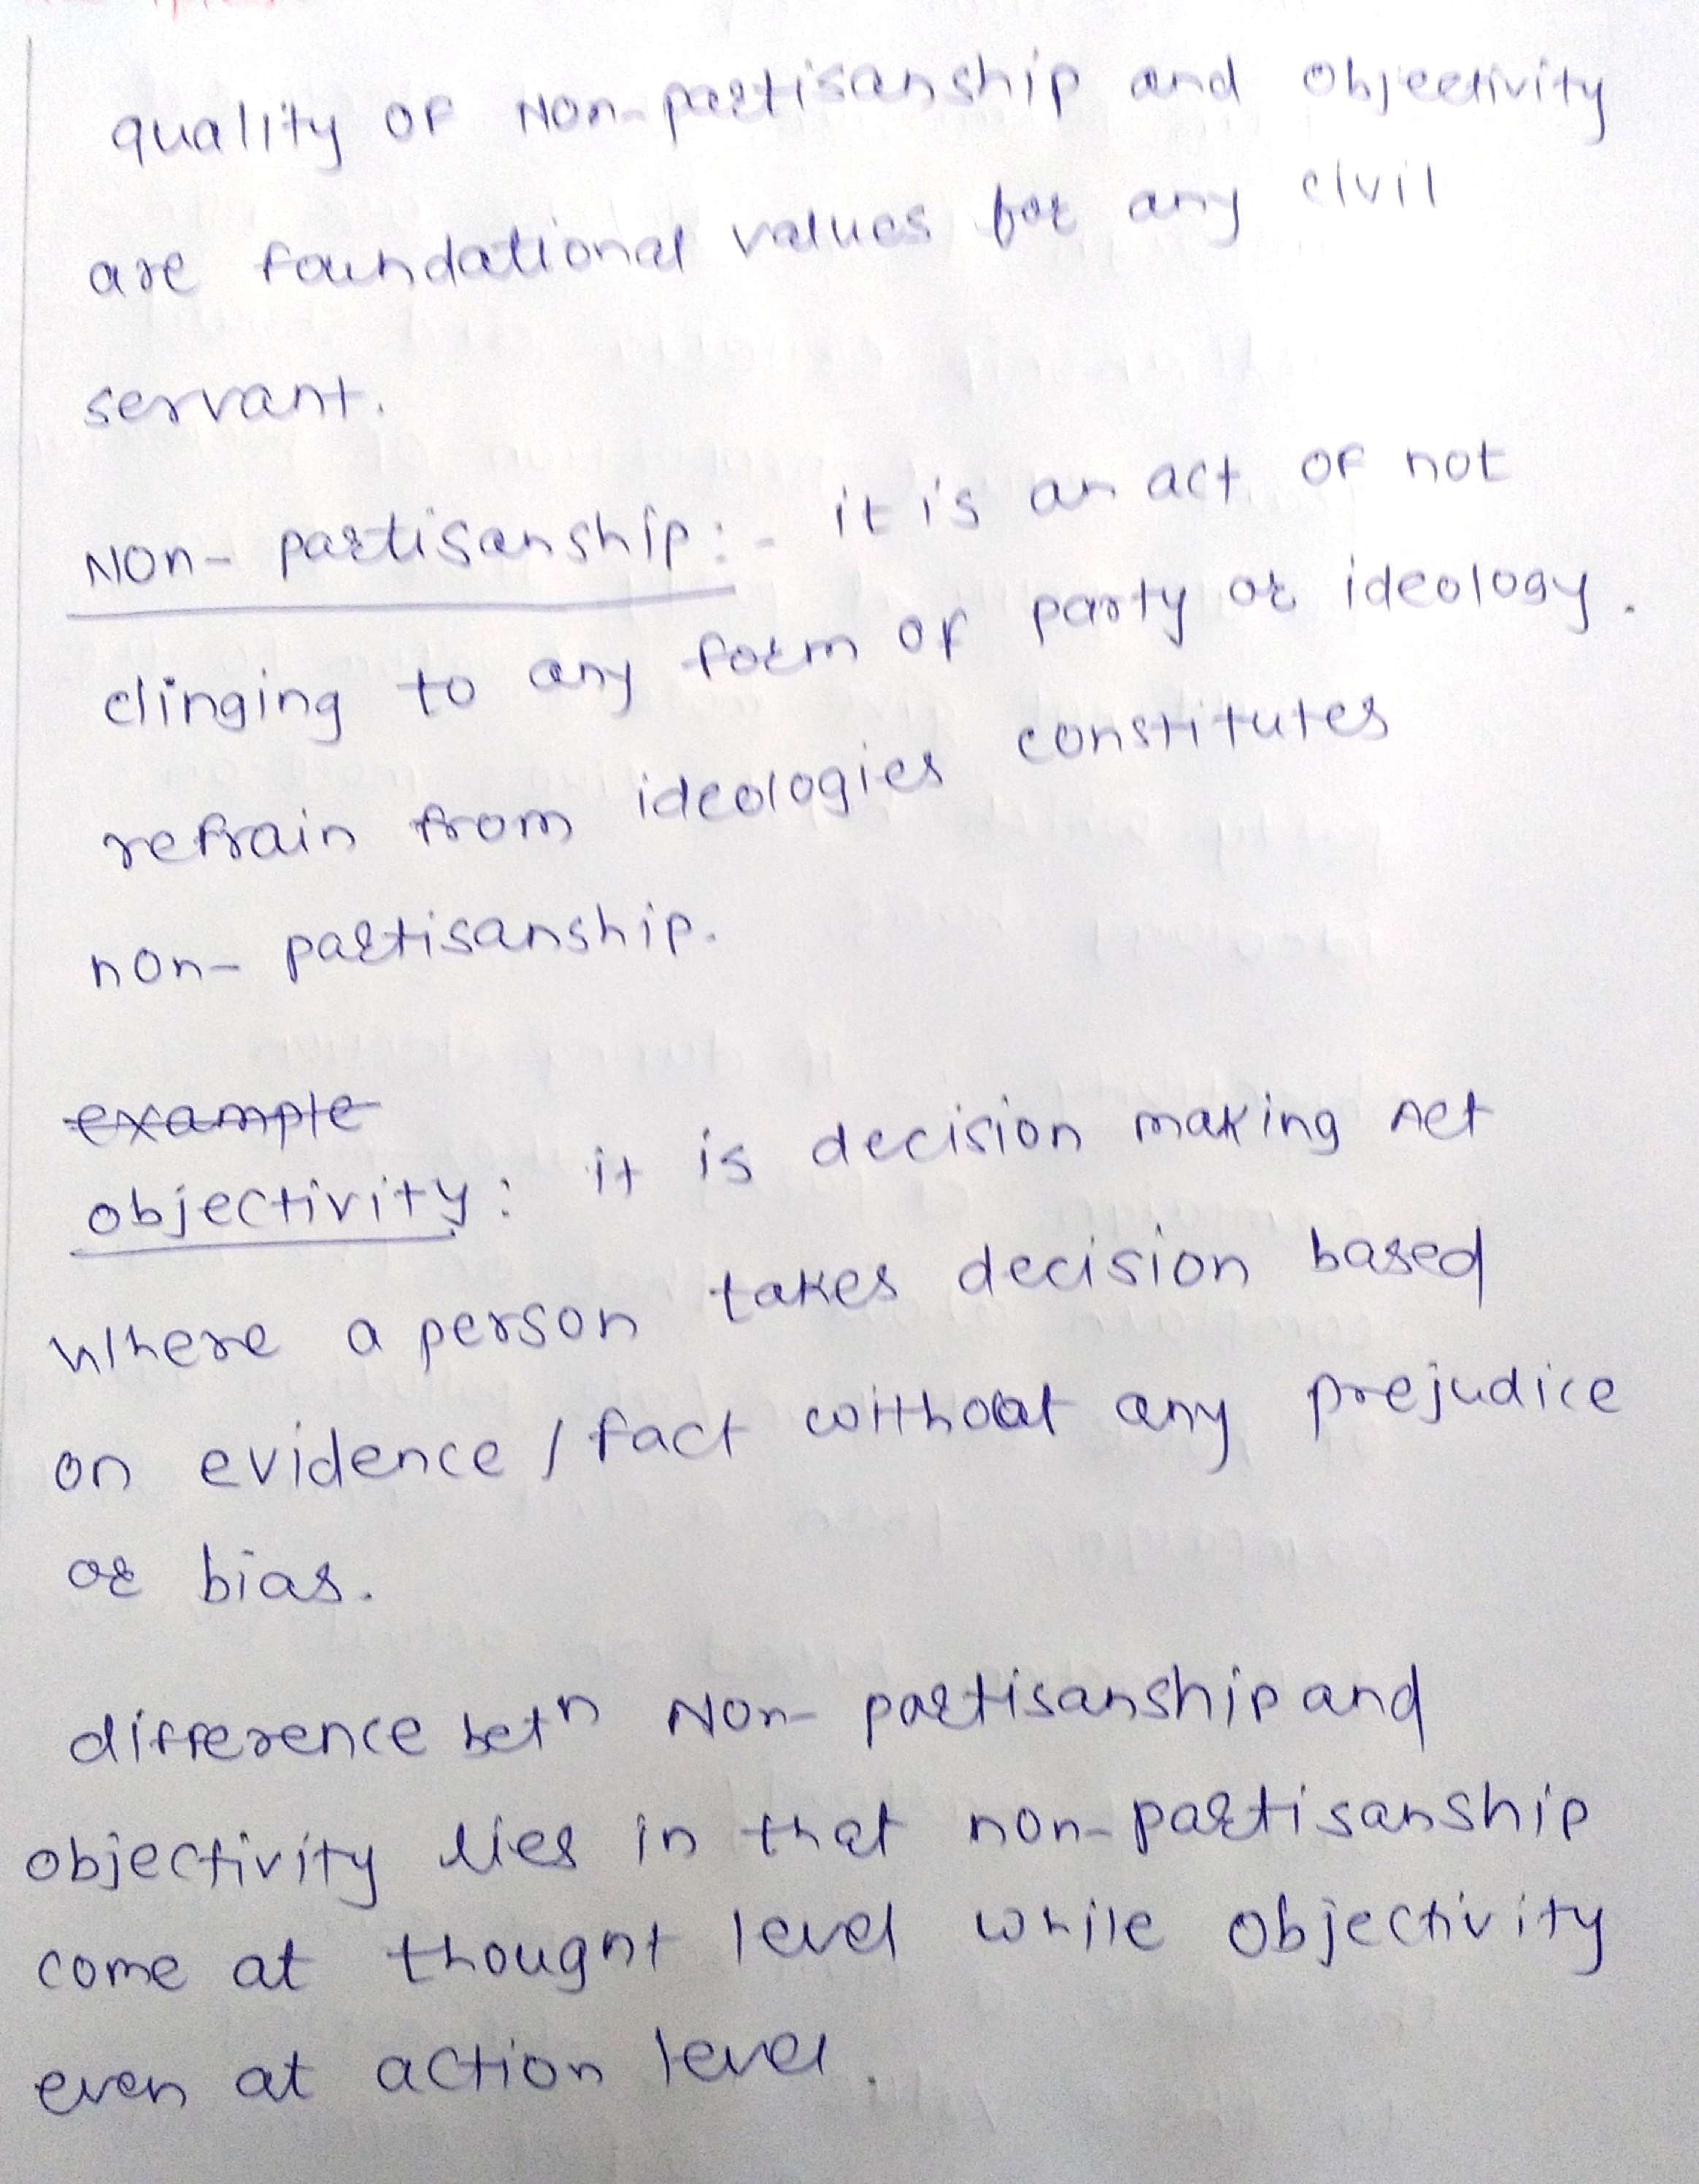 quality of Non-partisanship and objectivity
are foundational values for any civil
servant.
Non- partisanship:- it is an act of not
clinging to any form of party or ideology.
refrain from ideologies constitutes
non- partisanship.
example
objectivity: it is decision making Act
where a person takes decision based
on evidence / fact without any prejudice
or bias.
difference betn Non- partisanship and
objectivity lies in that non-partisanship
come at thought level while objectivity
even at action level.